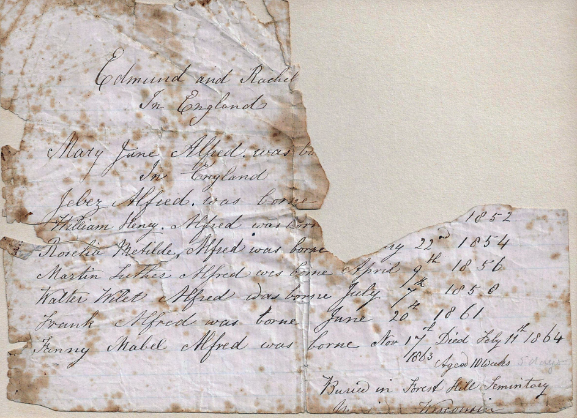 Edmund and Rachel
In England
Mary Jane Alfred was bo
In England
Jabez Alfred. was borne
1852
William Henry. Alfred was born
Roselia Metilde, Alfred was borne ry 22nd 1854
Martin Luther Alfred was borne April 9th 1856
Walter Wilet Alfred was borne July 1st 1858
Frank Alfred was borne June 20th 1861
Fanny Mabel Alfred was borne Nov 17th Died Feby 11th 1864
1863 Aged 10 Weeks
Buried in Forest Hill Semintory